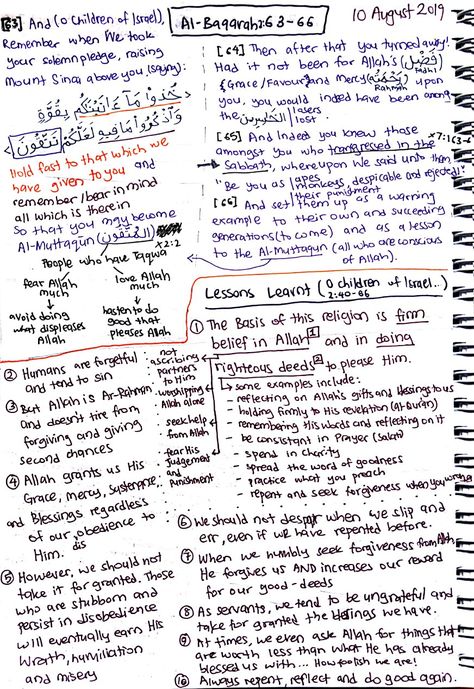 Al-Baqarah 2:63-66
10 August 2019
[63] And (O Children of Israel),
Remember when We took
your solemn pledge, raising
Mount Sinai above you (saying):
خُذُوا مَا ءَاتَيْنَٰكُم بِقُوَّةٍ
وَٱذْكُرُوا مَا فِيهِ لَعَلَّكُمْ تَتَّقُونَ
Hold fast to that which we
have given to you and
remember/bear in mind
all which is therein
So that you may become
Al-Muttaqun (المُتَّقُون)
x2:2
People who have Taqwa
fear Allah
much
love Allah
much
avoid doing
what displeases
Allah
hasten to do
good that
pleases Allah
[64] Then after that you turned away!
Had it not been for Allah's (فَضْل)
Fadhl
(Grace/Favour) and mercy (رَحْمَة)
Rahmah
upon
you, you would indeed have been among
the الخَٰسِرِين losers
lost.
[65] And indeed you knew those
x7:163-
amongst you who transgressed in the
Sabbath, whereupon We said unto them,
"Be you as apes
monkeys, despicable and rejected!"
[66] And set their punishment
them up as a warning
example to their own and succeeding
generations (to come) and as a lesson
to the Al-Muttaqun (all who are conscious
of Allah).
Lessons Learnt (O children of Israel..)
2:40-66
① The Basis of this religion is firm
belief in Allah [1] and in doing
righteous deeds [2] to please Him.
↳ some examples include:
- reflecting on Allah's gifts and blessings to us
- holding firmly to His revelation (Al-Quran)
- remembering His words and reflecting on it
- be consistant in Prayer (Salat)
- spend in charity
- spread the word of goodness
- practice what you preach
- repent and seek forgiveness when you
· not
ascribing
partners
to Him
· worshipping
Allah alone
· seek help
from Allah
· fear His
Judgement
and
punishment
② Humans are forgetful
and tend to sin
③ But Allah is Ar-Rahman
and doesn't tire from
forgiving and giving
second chances
④ Allah grants us His
Grace, mercy, sustenance,
and Blessings regardless
of our obedience to
Him. dis
⑤ However, we should not
take it for granted. Those
who are stubborn and
persist in disobedience
will eventually earn His
Wrath, humiliation
and misery
⑥ We should not despair when we slip and
err, even if we have repented before.
⑦ When we humbly seek forgiveness from Allah,
He forgives us AND increases our reward
for our good-deeds
⑧ As servants, we tend to be ungrateful and
take for granted the blessings we have.
⑨ At times, we even ask Allah for things that
are worth less than what He has already
blessed us with... How foolish we are!
⑩ Always repent, reflect and do good again.